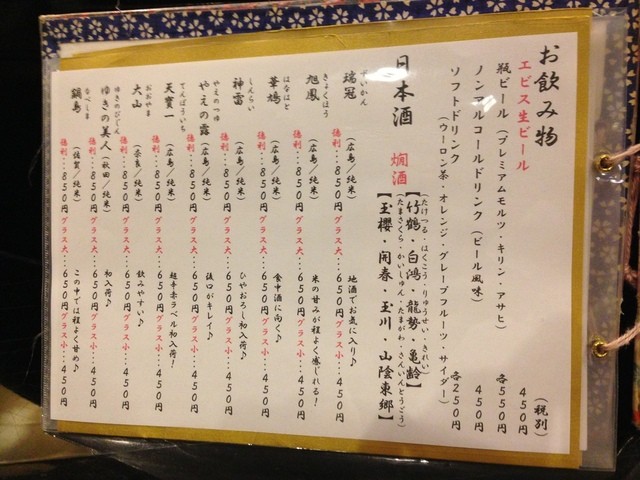 お飲み物
(税別)
エビス生ビール 450円
瓶ビール (プレミアムモルツ・キリン・アサヒ) 各550円
ノンアルコールドリンク (ビール風味) 450円
ソフトドリンク
(ウーロン茶・オレンジ・グレープフルーツ・サイダー) 各250円
日本酒 燗酒
(たけつる・はくこう・りゅうせい・きれい)
【竹鶴・白鴻・龍勢・亀齢】
(たまさくら・かいしゅん・たまがわ・さんいんとうごう)
【玉櫻・開春・玉川・山陰東郷】
ずいかん
瑞冠 (広島/純米) 地酒でお気に入り♪
徳利・・・850円 グラス大・・・650円 グラス小・・・450円
きょくほう
旭鳳 (広島/純米) 米の甘みが程よく感じれる!
徳利・・・850円 グラス大・・・650円 グラス小・・・450円
はなはと
華鳩 (広島/純米) 食中酒に向く♪
徳利・・・850円 グラス大・・・650円 グラス小・・・450円
しんらい
神雷 (広島/純米) ひやおろし初入荷♪
徳利・・・850円 グラス大・・・650円 グラス小・・・450円
やえのつゆ
やえの露 (広島/純米) 後口がキレイ♪
徳利・・・850円 グラス大・・・650円 グラス小・・・450円
てんぽういち
天寶一 (広島/純米) 超辛赤ラベル初入荷!
徳利・・・850円 グラス大・・・650円 グラス小・・・450円
おおやま
大山 (奈良/純米) 飲みやすい♪
徳利・・・850円 グラス大・・・650円 グラス小・・・450円
ゆきのびじん
ゆきの美人 (秋田/純米) 初入荷♪
徳利・・・850円 グラス大・・・650円 グラス小・・・450円
なべしま
鍋島 (佐賀/純米) この中では程よく甘め♪
徳利・・・850円 グラス大・・・650円 グラス小・・・450円